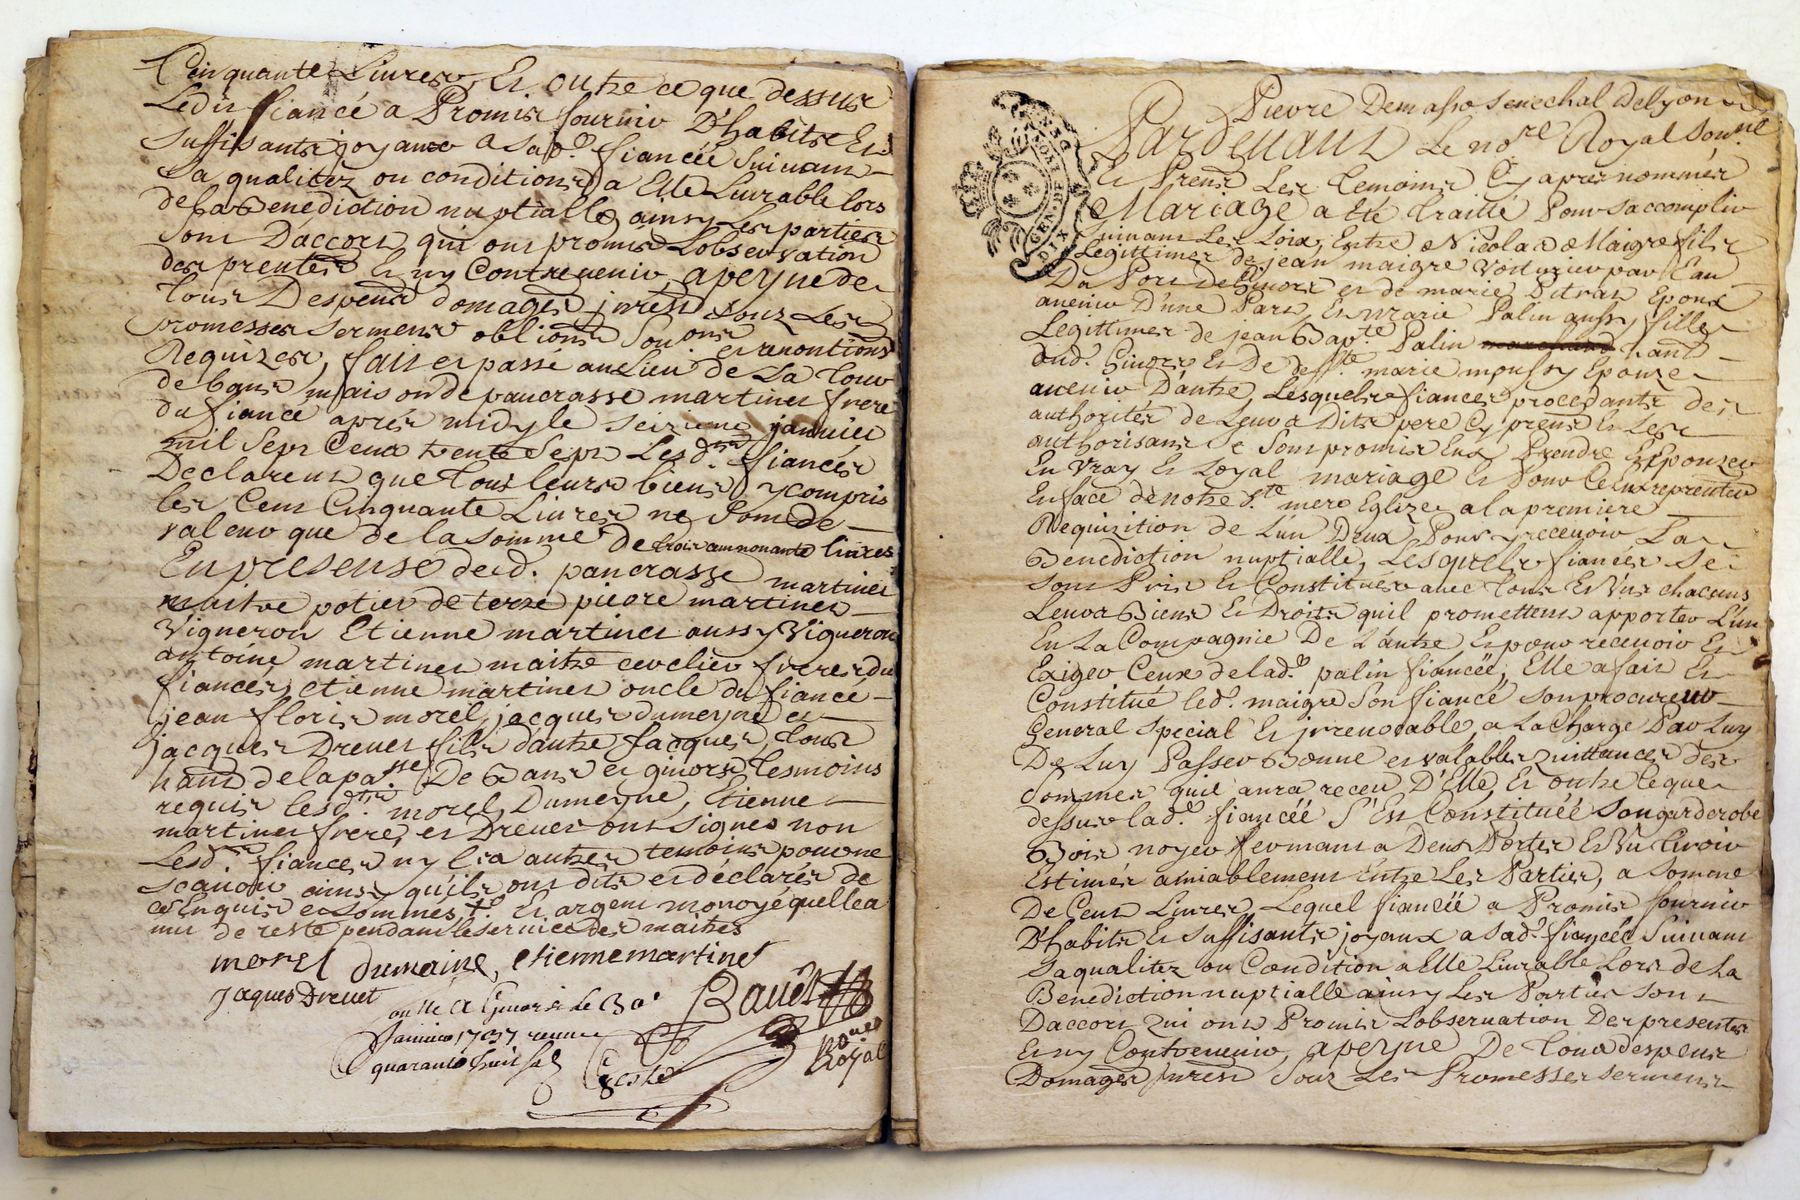 Cinquante Livres, Et outre ce que dessus
Ledit fiancé a Promis fournir D'habits Et
suffisants joyaux a sad.e fiancée suivant
sa qualitez ou conditions a Elle Livrable lors
de la Benediction nuptialle, ainsy Les parties
sont D'accort, qui ont promis L'observation
des pntes Et ny Contrevenir, a peyne de
tous Despens domages jnrets souz Les
promesses serments oblions Souons et renontions
Requizes, fait et passé au Lieu de La Tour
de bans maison de pancrasse martinet frere
du fiance après midy le seizieme janvier
mil Sept Cent trente Sept Lesd. fiancés
Declarent que tous leurs biens y compris
les Cent Cinquante Livres ne sont de
valeur que de la somme De trois cent nonante livres
En presense dud. pancrasse martinet
maitre potier de terre pierre martinet
Vigneron Etienne martinet aussy Vigneron
antoine martinet maitre cerclier freres du
fiance, etienne martinet oncle du fiance
jean floris morel, jacques dumeyne et
jacques Drevet fils d'autre Jacques, tous
hants de la passe De Bans et givors tesmoins
requis lesd. morel, Dumeyne, Etienne
martinet frere, et Drevet ont signes non
Lesd. fiances ny les autres temoins pour ne
scavoir ainsy qu'ils ont dits et déclarés de
ce Enquis et sommes, Et argent monoyé quelle a
mis de reste pendant le service des maitres
morel dumaine, etiennemartinet
Jaques Drevet
Bauet
No.re Royal
Conlle A Givors le 30e
Janvier 1737 receu
quarante huit sols
Coste
Pierre Demasso senechal de Lyon
Pardevant Le nore Royal sousne
Et Prent Les temoins Cy apres nommés
Mariage a Eté traitté Pour s'accomplir
suivant Les Loix, Entre Nicolas Maigre fils
Legittimes de jean maigre Voiturier par Eau
Du Port de Givors et de marie Pitrat Epoux
avenir D'une Part, Et marie Palin aussy fille
Legittimes de jean Bapte Palin hant
dud. Givors Et De deffte marie moussy Epouze
avenir D'autre, Lesquels fiancés procedants des
authorités de Leurs Dits pere Cy prent Et Les
authorisant se sont promis Eux Prendre Et Epouzer
En Vray Et Loyal mariage Et Pour Ce Eux representer
En face de notre Ste mere Eglize a la premiere
Requizition de L'un D'eux Pour y recevoir La
Benediction nuptialle, Lesquels fiancés se
sont Pris Et Constitues avec tous Et Uns chacuns
Leurs Biens Et Droits quil promettent apporter L'un
En La Compagnie De L'autre Et pour recevoir Et
Exiger Ceux de lad.e palin fiancée, Elle a fait Et
Constitué led. maigre Son fiancé son procureur
General special Et jrrevocable, a La Charge Par Luy
De Luy Passer Bonne et valables quittances des
sommes quil aura receu D'Elle, Et outre Ce que
dessus lad.e fiancée S'Est Constituée son garderobe
Bois noyer fermant a Deux Portes Et Un tiroir
Estimés amiablement Entre Les Parties, a somme
De Cent Livres, Lequel fiancé a Promis fournir
D'habits Et suffisants joyaux a sad.e fiancée suivant
sa qualitez ou Condition a Elle Livrable Lors de La
Benediction nuptialle ainsy Les Parties sont
D'accort qui ont Promis L'observation Des presentes
Et ny Contrevenir, a peyne De tous despens
Domages jnrets Souz Les Promesses serments
GEN. DE
DIX